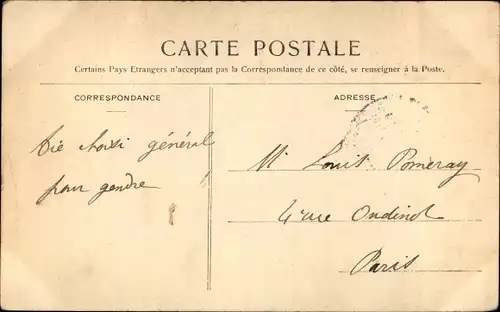 CARTE POSTALE
Certains Pays Etrangers n'acceptant pas la Correspondance de ce côté, se renseigner à la Poste.
CORRESPONDANCE
ADRESSE
général
pour gendre
Mr Louis Pomeray
4 rue Oudinot
Paris